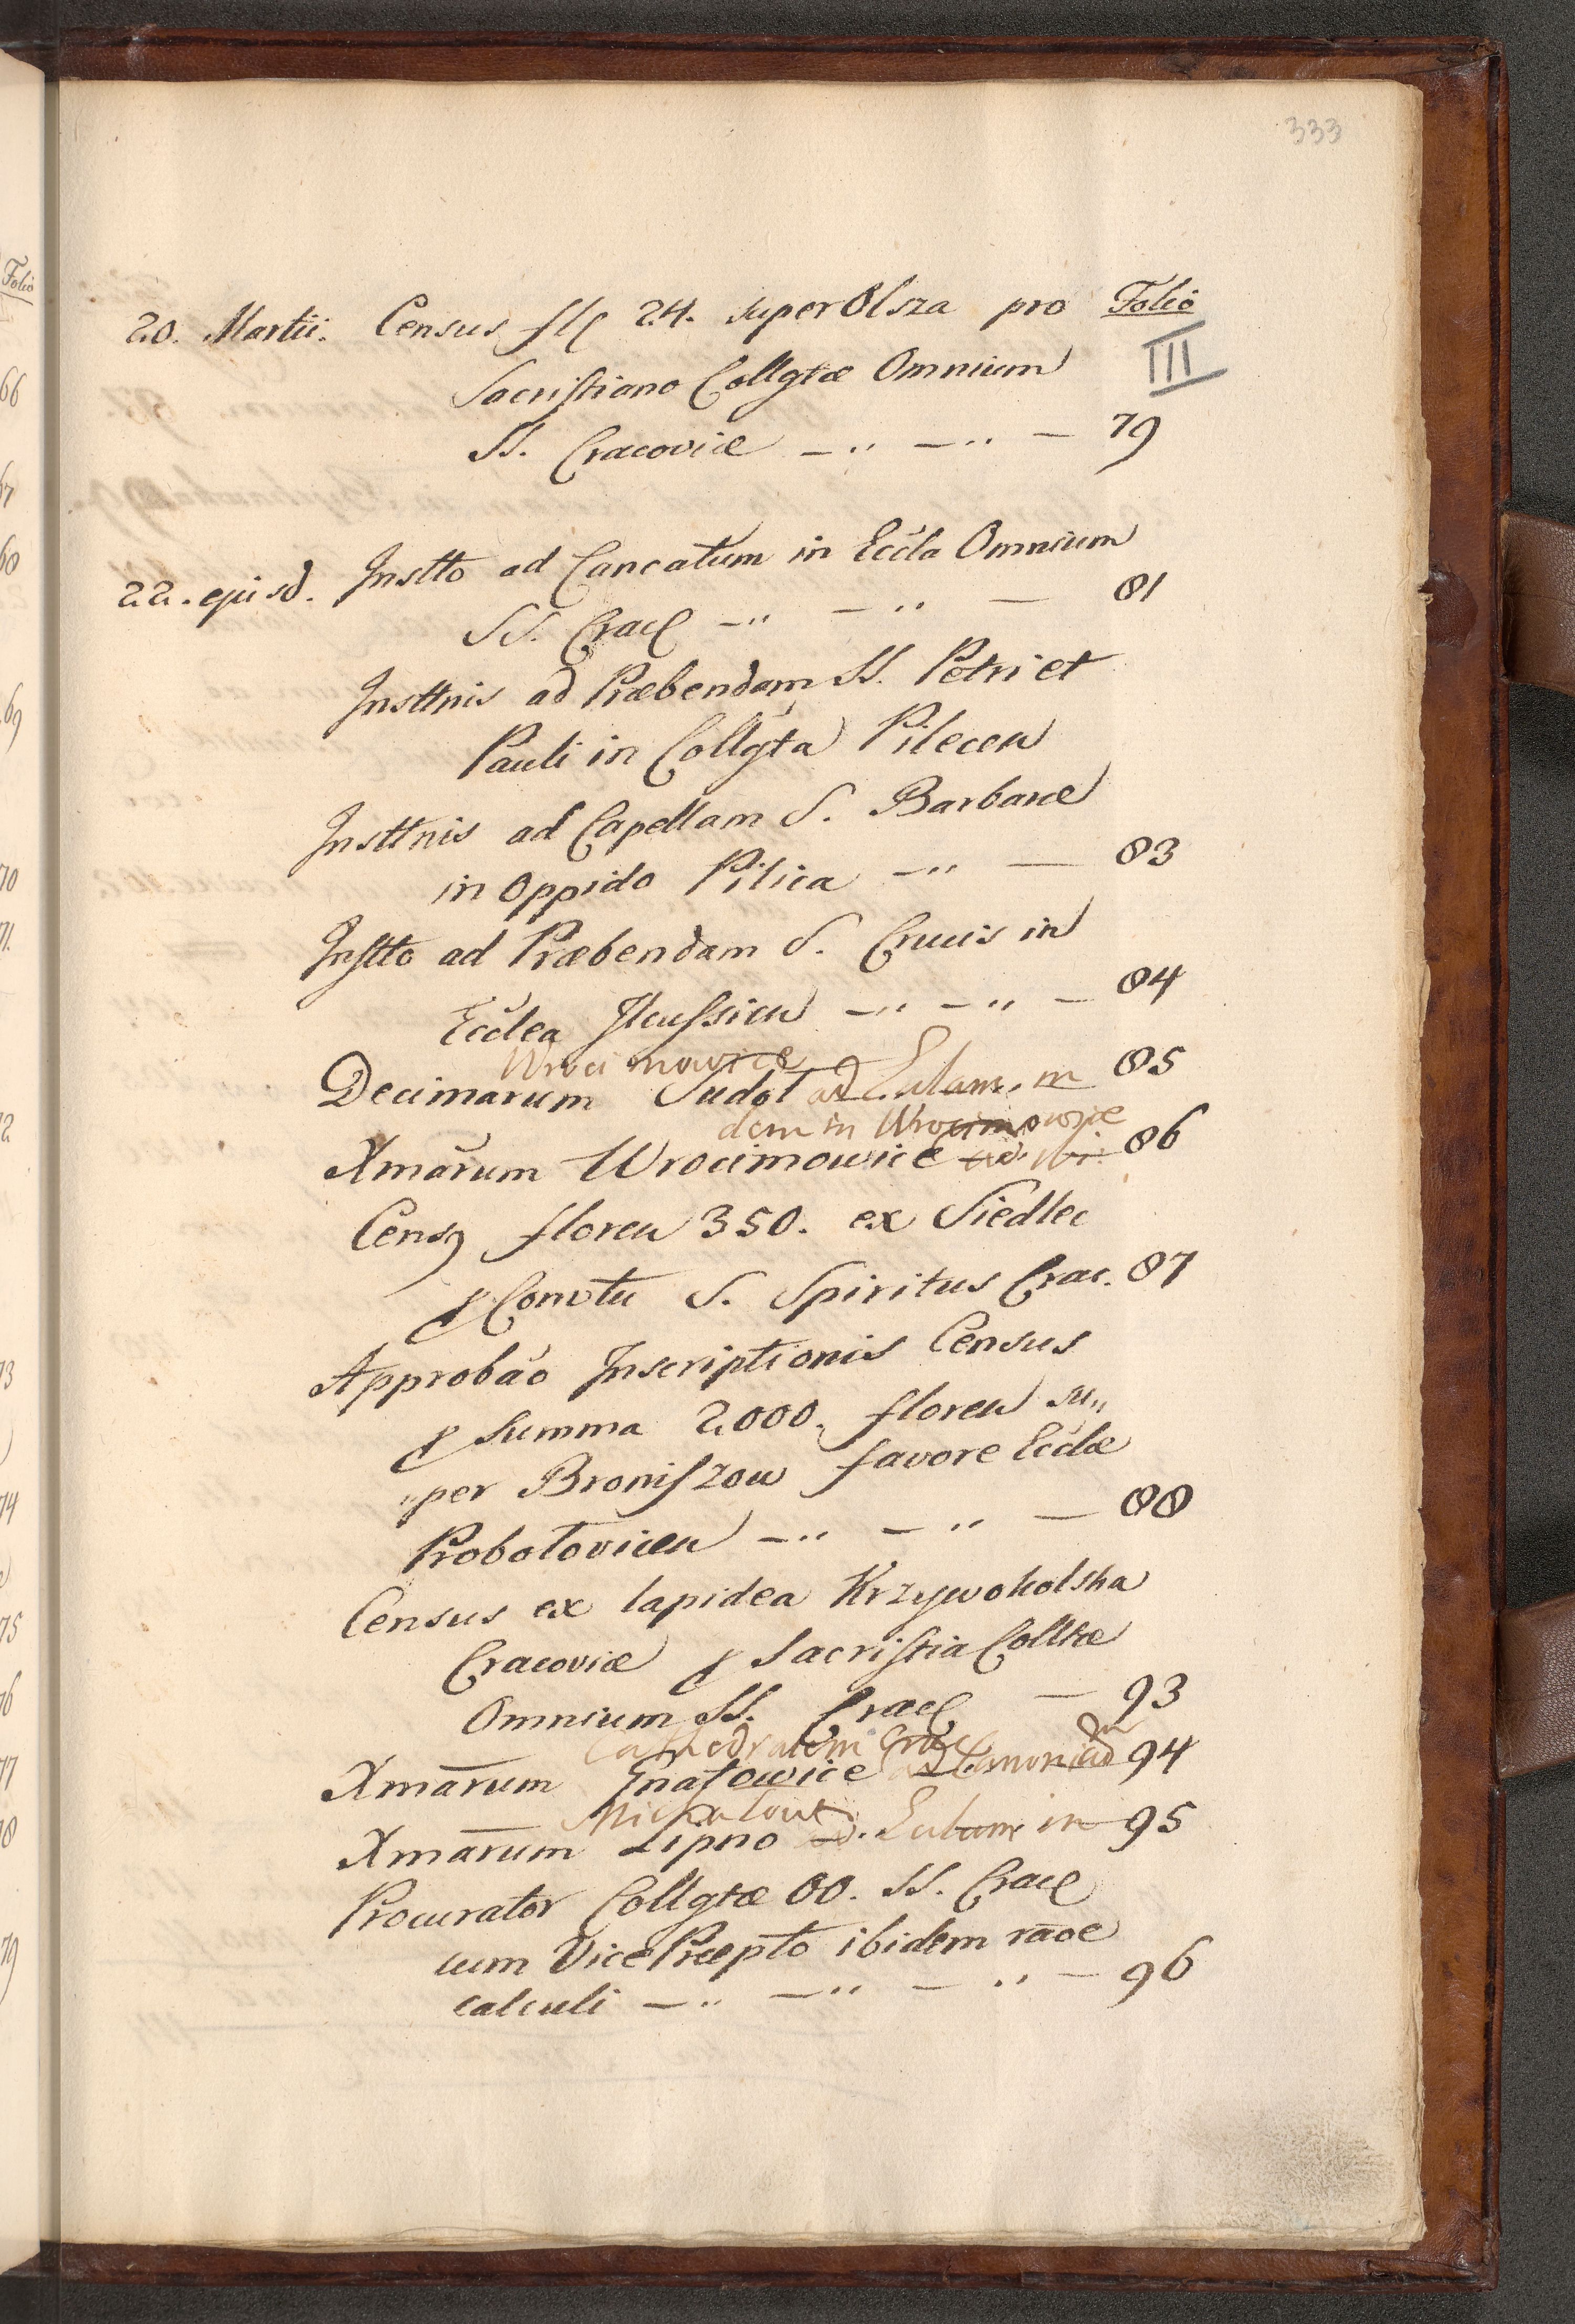 333
Folio
20. Martii. Census fl 24. super Olsza pro
III
Sacristiano Collgtæ Omnium
SS. Cracoviæ 79
22. ejusd. Insttto ad Cancatum in Eccla Omnium
SS. Crac 81
Insttnis ad Præbendam SS. Petri et
Pauli in Collgta Pilecen
Insttnis ad Capellam S. Barbaræ
in Oppido Pilica 83
Instto ad Præbendam S. Crucis in
Ecclea Ilcussien 84
Wroci mowice
Decimarum Sudoł ad in 85
dem in Wrocimowice
Xmarum Wrocimowice 86
Census floren 350. ex Siedlec
p Convtu S. Spiritus Crac. 87
Approbao Inscriptionis Census
p summa 2000. floren su,,
,,per Broniszow favore Ecclæ
Probołovicen 88
Census ex lapidea Krzywokolska
Cracoviæ p Sacristia Colltæ
Omnium SS. Crac 93
Cathedralem Crac
Xmarum Gnatowice ad Canonicam 94
Xmarum Lipno in 95
Procurator Collgtæ OO. SS. Crac
cum Vice Præpto ibidem raõe
calculi 96
Folio
66
67
68
69
70
71.
72
73
74
75
76
77
78
79